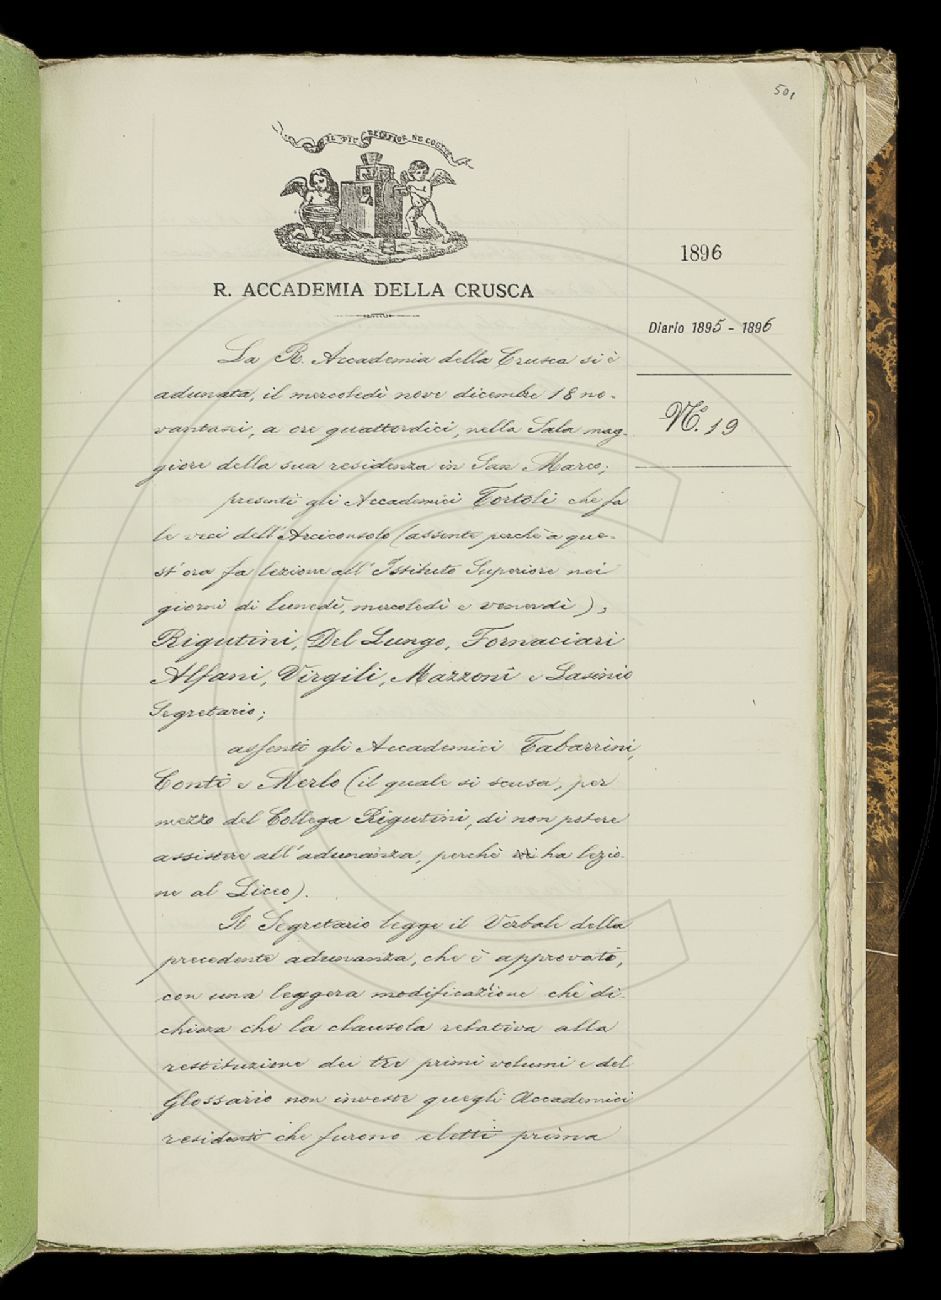 501
IL PIÙ BEL FIOR NE COGLIE
R. ACCADEMIA DELLA CRUSCA
1896
Diario 1895 - 1896
N.º 19
La R. Accademia della Crusca si è
adunata, il mercoledì nove dicembre 18 no-
vantasei, a ore quattordici, nella Sala mag-
giore della sua residenza in San Marco;
presenti gli Accademici Tortoli che fa
le veci dell'Arciconsolo (assente perchè a que-
st'ora fa lezione all'Istituto Superiore nei
giorni di lunedì, mercoledì e venerdì),
Rigutini, Del Lungo, Fornaciari
Alfani, Virgili, Mazzoni e Lasinio
Segretario;
assenti gli Accademici Tabarrini,
Conti e Merlo (il quale si scusa, per
mezzo del Collega Rigutini, di non potere
assistere all'adunanza, perchè ha lezio-
ne al Liceo).
Il Segretario legge il Verbale della
precedente adunanza, che è approvato,
con una leggera modificazione che di-
chiara che la clausola relativa alla
restituzione dei tre primi volumi e del
Glossario non investe quegli Accademici
residenti che furono eletti prima